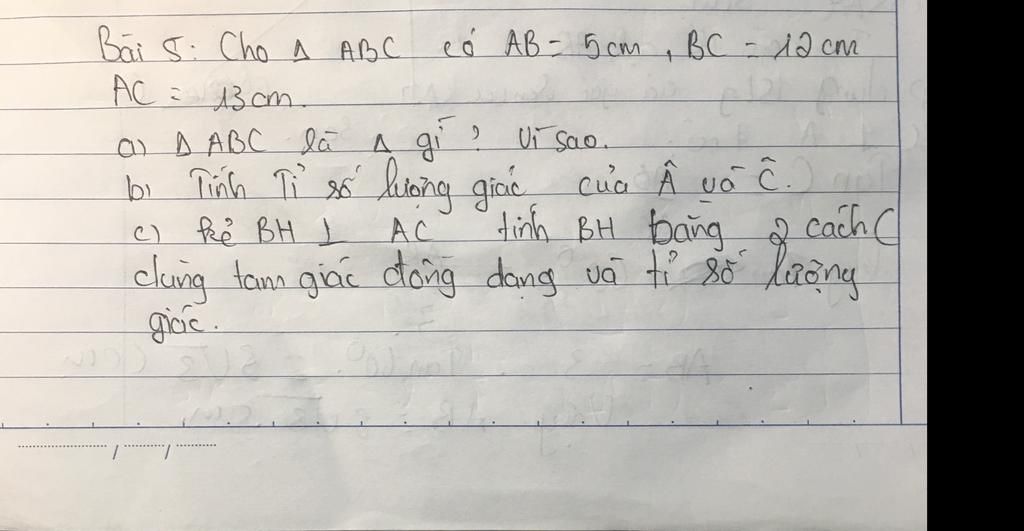 Bài 5: Cho Δ ABC có AB = 5cm, BC = 12cm
AC = 13cm.
a) Δ ABC là Δ gì? Vì sao.
b) Tính Tỉ số lượng giác của Â và Ĉ.
c) Kẻ BH ⊥ AC tính BH bằng 2 cách (
dùng tam giác đồng dạng và tỉ số lượng
giác.